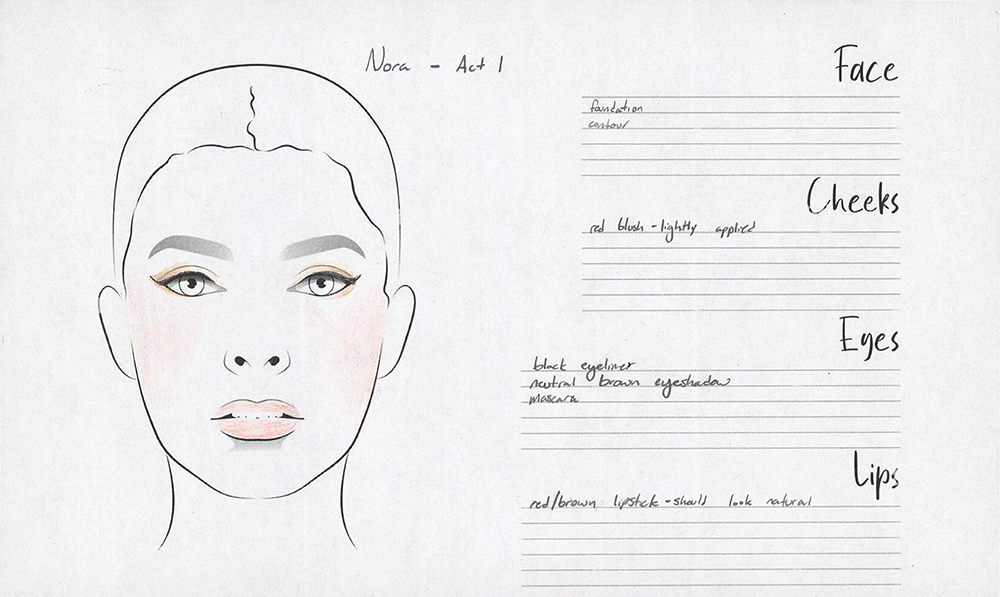 Nora - Act 1
Face
foundation
contour
Cheeks
red blush - lightly applied
Eyes
black eyeliner
neutral brown eyeshadow
mascara
Lips
red/brown lipstick - should look natural